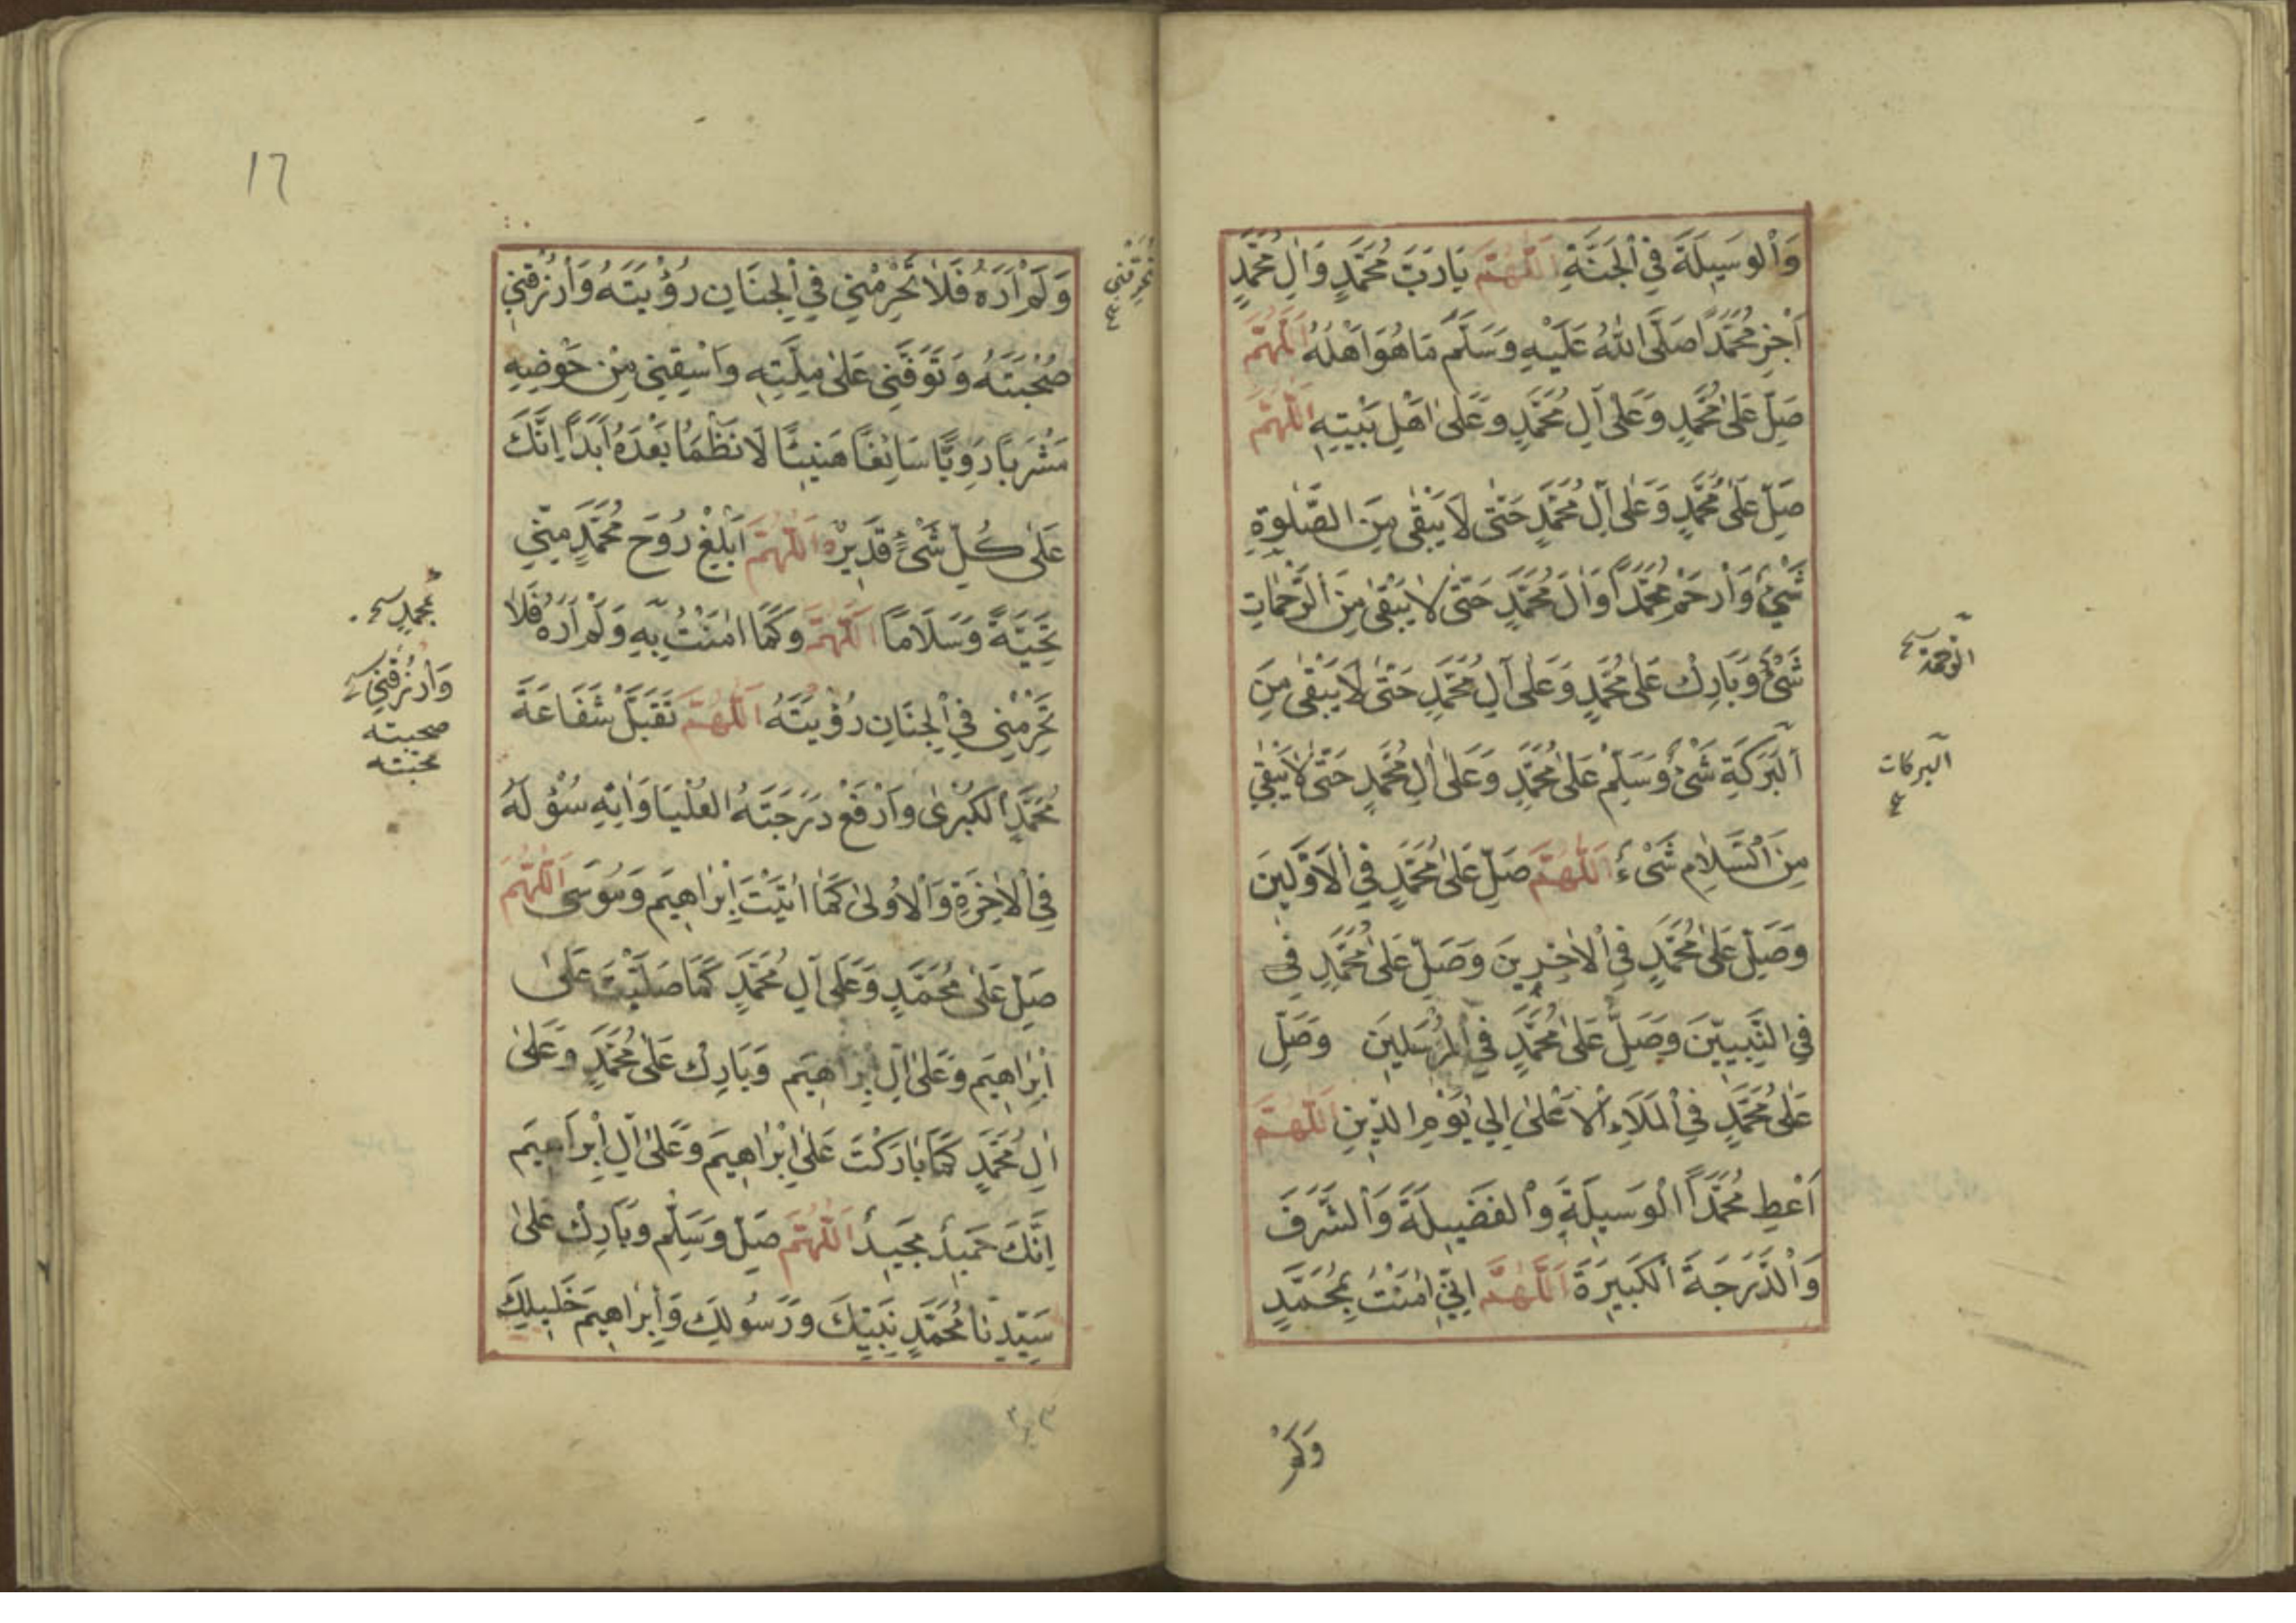 وَالْوَسِيلَةَ فِي الْجَنَّةِ اَللّٰهُمَّ يَا رَبَّ مُحَمَّدٍ وَاٰلِ مُحَمَّدٍ
اَجْزِ مُحَمَّدًا صَلَّى اللّٰهُ عَلَيْهِ وَسَلَّمَ مَا هُوَ اَهْلُهُ اَللّٰهُمَّ
صَلِّ عَلٰى مُحَمَّدٍ وَعَلٰى اٰلِ مُحَمَّدٍ وَعَلٰى اَهْلِ بَيْتِهِ اَللّٰهُمَّ
صَلِّ عَلٰى مُحَمَّدٍ وَعَلٰى اٰلِ مُحَمَّدٍ حَتّٰى لَا يَبْقٰى مِنَ الصَّلٰوةِ
شَيْءٌ وَارْحَمْ مُحَمَّدًا وَاٰلَ مُحَمَّدٍ حَتّٰى لَا يَبْقٰى مِنَ الرَّحَمَاتِ
شَيْءٌ وَبَارِكْ عَلٰى مُحَمَّدٍ وَعَلٰى اٰلِ مُحَمَّدٍ حَتّٰى لَا يَبْقٰى مِنَ
الْبَرَكَةِ شَيْءٌ وَسَلِّمْ عَلٰى مُحَمَّدٍ وَعَلٰى اٰلِ مُحَمَّدٍ حَتّٰى لَا يَبْقٰى
مِنَ السَّلَامِ شَيْءٌ اَللّٰهُمَّ صَلِّ عَلٰى مُحَمَّدٍ فِي الْاَوَّلِينَ
وَصَلِّ عَلٰى مُحَمَّدٍ فِي الْاٰخِرِينَ وَصَلِّ عَلٰى مُحَمَّدٍ فِي
فِي النَّبِيِّينَ وَصَلِّ عَلٰى مُحَمَّدٍ فِي الْمُرْسَلِينَ وَصَلِّ
عَلٰى مُحَمَّدٍ فِي الْمَلَاءِ الْاَعْلٰى اِلٰي يَوْمِ الدِّينِ اَللّٰهُمَّ
اَعْطِ مُحَمَّدًا الْوَسِيلَةَ وَالْفَضِيلَةَ وَالشَّرَفَ
وَالدَّرَجَةَ الْكَبِيرَةَ اَللّٰهُمَّ اِنِّي اٰمَنْتُ بِمُحَمَّدٍ
وَلَمْ
الرحمة
البركات
١٦
وَلَمْ اَرَهُ فَلَا تَحْرِمْنِي فِي الْجِنَانِ رُؤْيَتَهُ وَارْزُقْنِي
صُحْبَتَهُ وَتَوَفَّنِي عَلٰى مِلَّتِهِ وَاسْقِنِي مِنْ حَوْضِهِ
مَشْرَبًا رَوِيًّا سَائِغًا هَنِيئًا لَا نَظْمَأُ بَعْدَهُ اَبَدًا اِنَّكَ
عَلٰى كُلِّ شَيْءٍ قَدِيرٌ اَللّٰهُمَّ اَبْلِغْ رُوحَ مُحَمَّدٍ مِنِّي
تَحِيَّةً وَسَلَامًا اَللّٰهُمَّ وَكَمَا اٰمَنْتُ بِهِ وَلَمْ اَرَهُ فَلَا
تَحْرِمْنِي فِي الْجِنَانِ رُؤْيَتَهُ اَللّٰهُمَّ تَقَبَّلْ شَفَاعَةَ
مُحَمَّدٍ الْكُبْرٰى وَارْفَعْ دَرَجَتَهُ الْعُلْيَا وَاٰتِهِ سُؤْلَهُ
فِي الْاٰخِرَةِ وَالْاُولٰى كَمَا اٰتَيْتَ اِبْرَاهِيمَ وَمُوسَى اَللّٰهُمَّ
صَلِّ عَلٰى مُحَمَّدٍ وَعَلٰى اٰلِ مُحَمَّدٍ كَمَا صَلَّيْتَ عَلٰى
اِبْرَاهِيمَ وَعَلٰى اٰلِ اِبْرَاهِيمَ وَبَارِكْ عَلٰى مُحَمَّدٍ وَعَلٰى
اٰلِ مُحَمَّدٍ كَمَا بَارَكْتَ عَلٰى اِبْرَاهِيمَ وَعَلٰى اٰلِ اِبْرَاهِيمَ
اِنَّكَ حَمِيدٌ مَجِيدٌ اَللّٰهُمَّ صَلِّ وَسَلِّمْ وَبَارِكْ عَلٰى
سَيِّدِنَا مُحَمَّدٍ نَبِيِّكَ وَرَسُولِكَ وَاِبْرَاهِيمَ خَلِيلِكَ
بمحمدٍ
وَارْزُقْنِي
صحبته
محبته